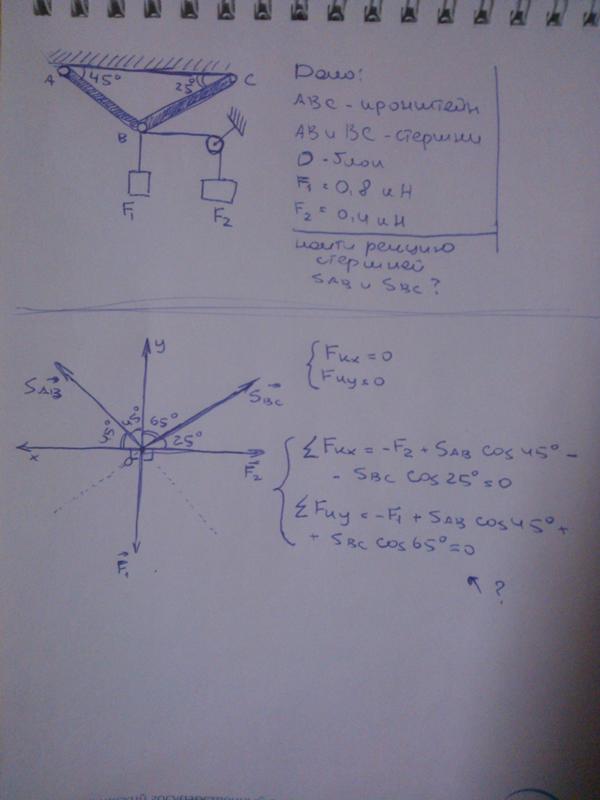 A 45° 25° C
B
F₁ F₂
Дано:
ABC - кронштейн
AB и BC - стержни
D - блок
F₁ = 0,8 кН
F₂ = 0,4 кН
найти реакцию
стержней
SAB и SBC?
y
SAB
SBC
45° 45° 65° 25°
x
F₂
F₁
{ Fкx = 0
Fкy = 0
{ ΣFкx = -F₂ + SAB cos 45° -
- SBC cos 25° = 0
ΣFкy = -F₁ + SAB cos 45° +
+ SBC cos 65° = 0
?